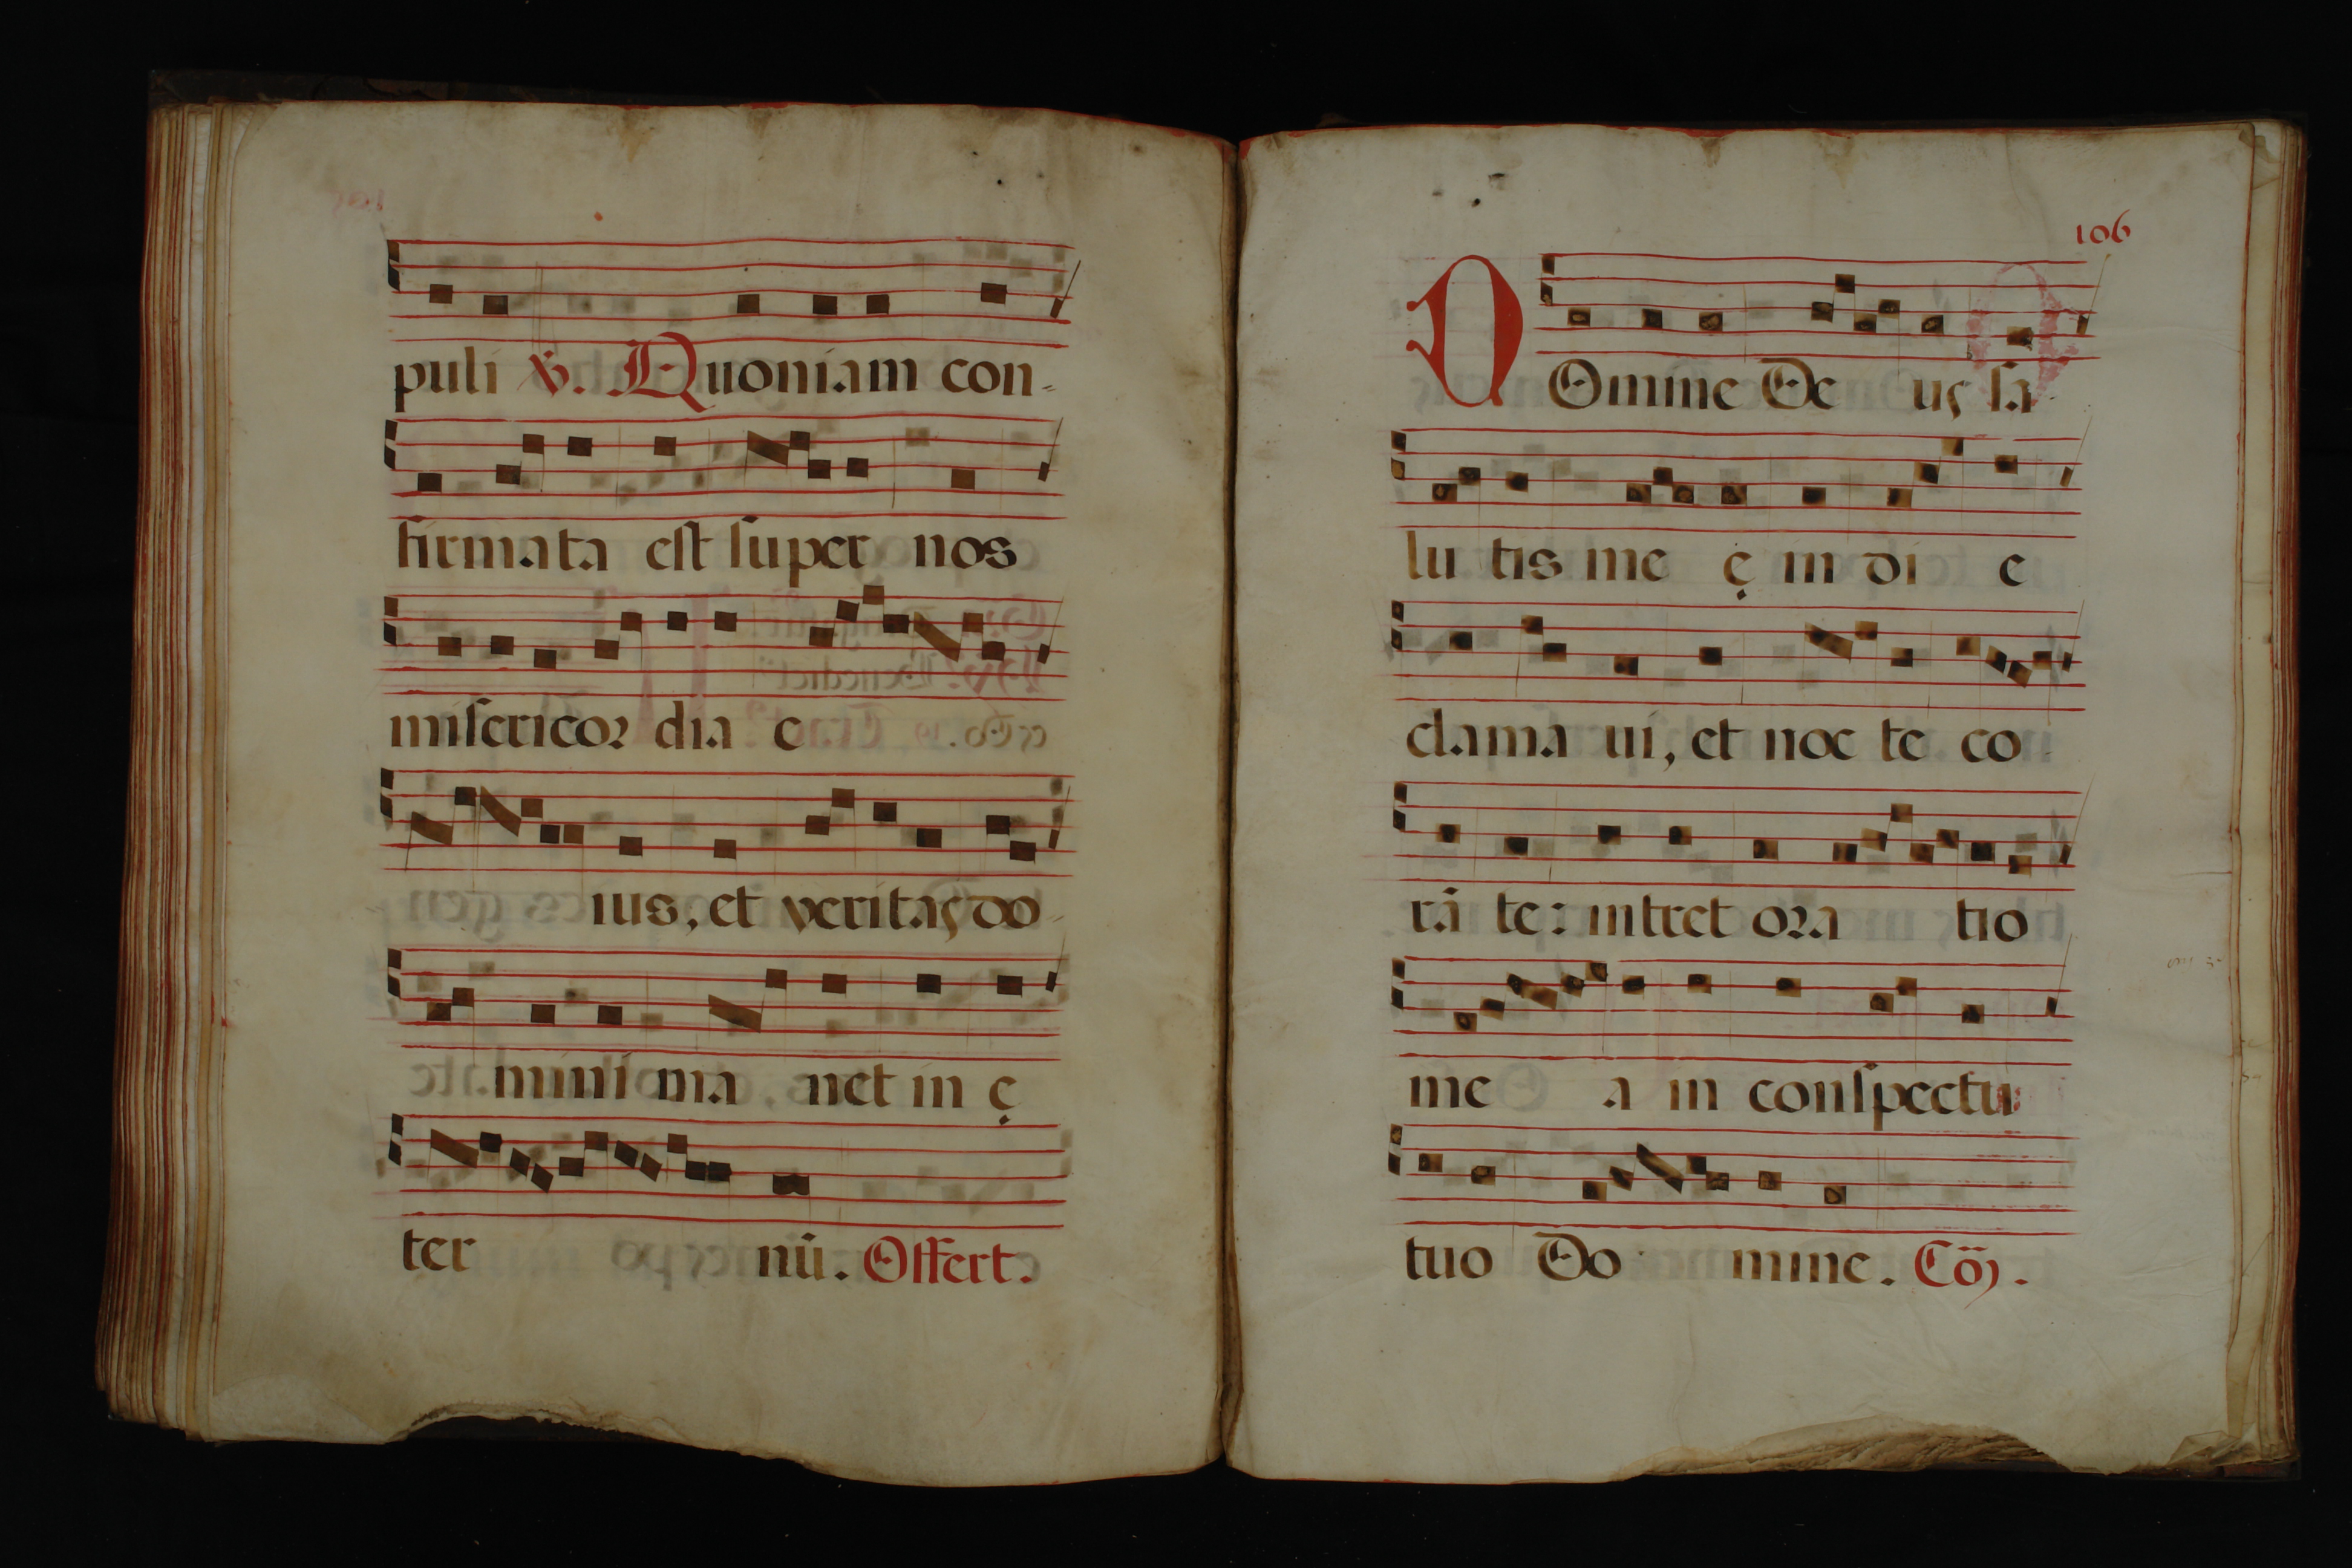 puli ℣. Quoniam con-
firmata est super nos
misericor dia e
ius, et veritas do-
mini ma net in ę
ter nū. Offert.
106
DOmine De us sa
lu tis me ę in di e
clama ui, et noc te co
rā te: intret ora tio
me a in conspectu
tuo Do mine. Cō.